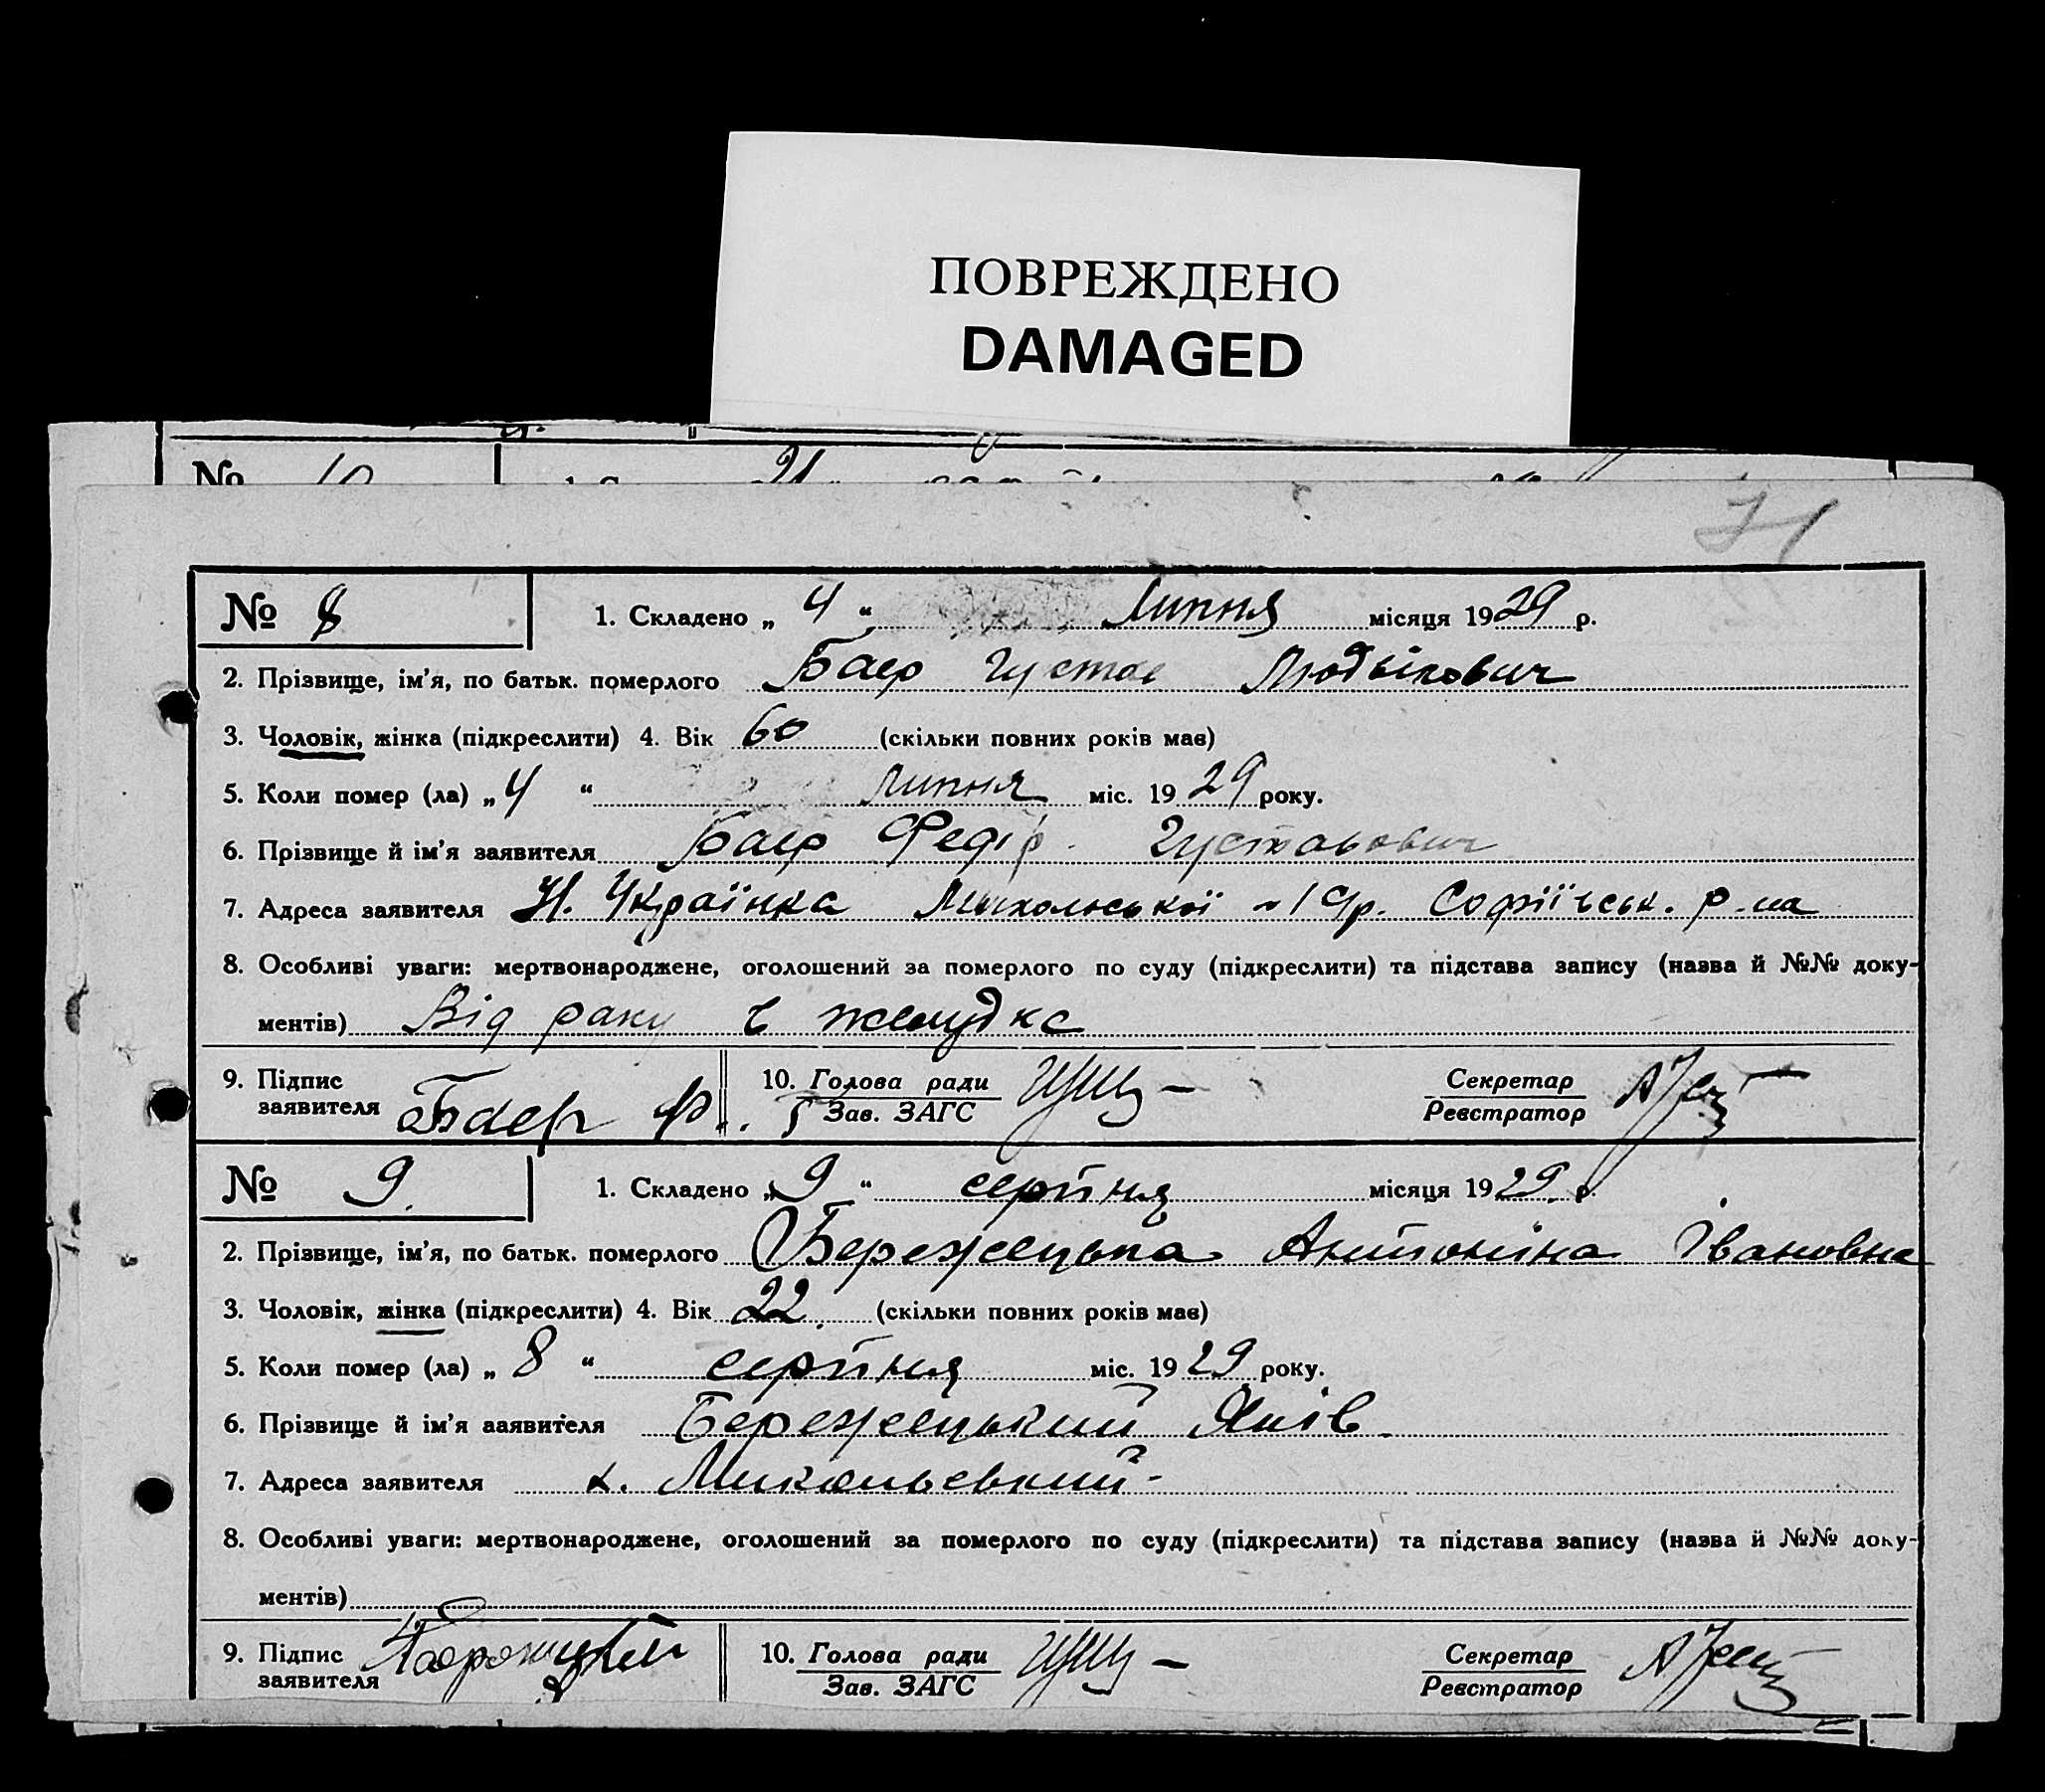 ПОВРЕЖДЕНО
DAMAGED
№ 10
71
№ 8 1. Складено „ 4 “ Липня місяця 1929 р.
2. Прізвище, ім’я, по батьк. померлого Баер Густав Людвікович
3. Чоловік, жінка (підкреслити) 4. Вік 60 (скільки повних років має)
5. Коли помер (ла) „ 4 “ Липня міс. 1929 року.
6. Прізвище й ім’я заявителя Баер Федір Густавович
7. Адреса заявителя Н. Українка Софіївськ. р-на
8. Особливі уваги: мертвонароджене, оголошений за померлого по суду (підкреслити) та підстава запису (назва й №№ доку-
ментів) Від раку в желудке
9. Підпис
заявителя Баер Ф.
10. Голова ради
Зав. ЗАГС
Секретар
Реєстратор
№ 9. 1. Складено „ 9 “ серпня місяця 1929. р.
2. Прізвище, ім’я, по батьк. померлого Бережецька Антоніна Івановна
3. Чоловік, жінка (підкреслити) 4. Вік 22. (скільки повних років має)
5. Коли помер (ла) „ 8 “ серпня міс. 1929 року.
6. Прізвище й ім’я ааявителя Бережецький Яків.
7. Адреса заявителя х. Микольський
8. Особливі уваги: мертвонароджене, оголошений за померлого по суду (підкреслити) та підстава запису (назва й №№ доку-
ментів)
9. Підпис
заявителя
10. Голова ради
Зав. ЗАГС
Секретар
Реєстратор